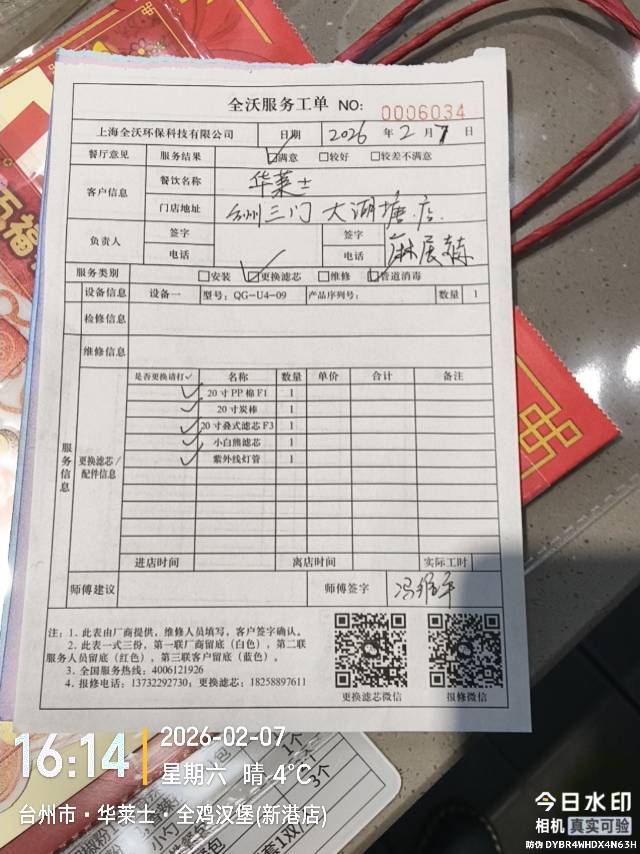 全沃服务工单 NO: 0006034
上海全沃环保科技有限公司 日期 2026 年 2 月 7 日
餐厅意见 服务结果 ☑满意 □较好 □较差不满意
客户信息 餐饮名称 华莱士
门店地址 台州三门大湖塘店
负责人 签字 签字
电话 电话
服务类别 □安装 ☑更换滤芯 □维修 □管道消毒
设备信息 设备一 型号: QG-U4-09 产品序列号: 数量 1
检修信息
维修信息
服务信息
更换滤芯/配件信息
是否更换请打✓ 名称 数量 单价 合计 备注
✓ 20 寸 PP 棉 F1 1
✓ 20 寸炭棒 1
✓ 20 寸叠式滤芯 F3 1
✓ 小白熊滤芯 1
✓ 紫外线灯管 1
进店时间 离店时间 实际工时
师傅建议 师傅签字
注: 1. 此表由厂商提供, 维修人员填写, 客户签字确认。
2. 此表一式三份, 第一联厂商留底 (白色), 第二联
服务人员留底 (红色), 第三联客户留底 (蓝色)。
3. 全国服务热线: 4006121926
4. 报修电话: 13732292730; 更换滤芯: 18258897611
更换滤芯微信 报修微信
16:14 2026-02-07
星期六 晴 4℃
台州市·华莱士·全鸡汉堡(新港店)
今日水印
相机 真实可验
防伪 DYBR4WHDX4N63H